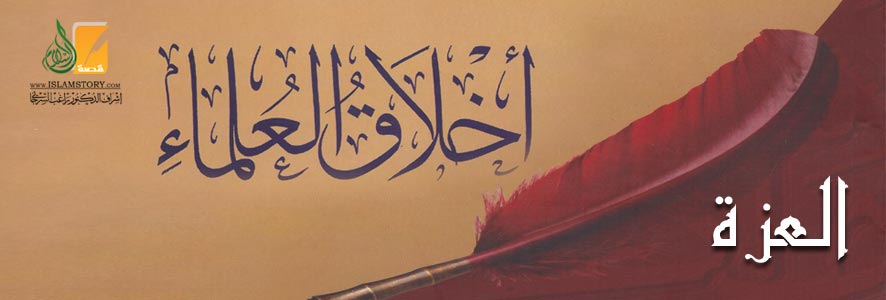 قصة
WWW.ISLAMSTORY.COM
إشراف الدكتور راغب السرجاني
أَخْلَاقُ العُلَمَاءِ
العزة